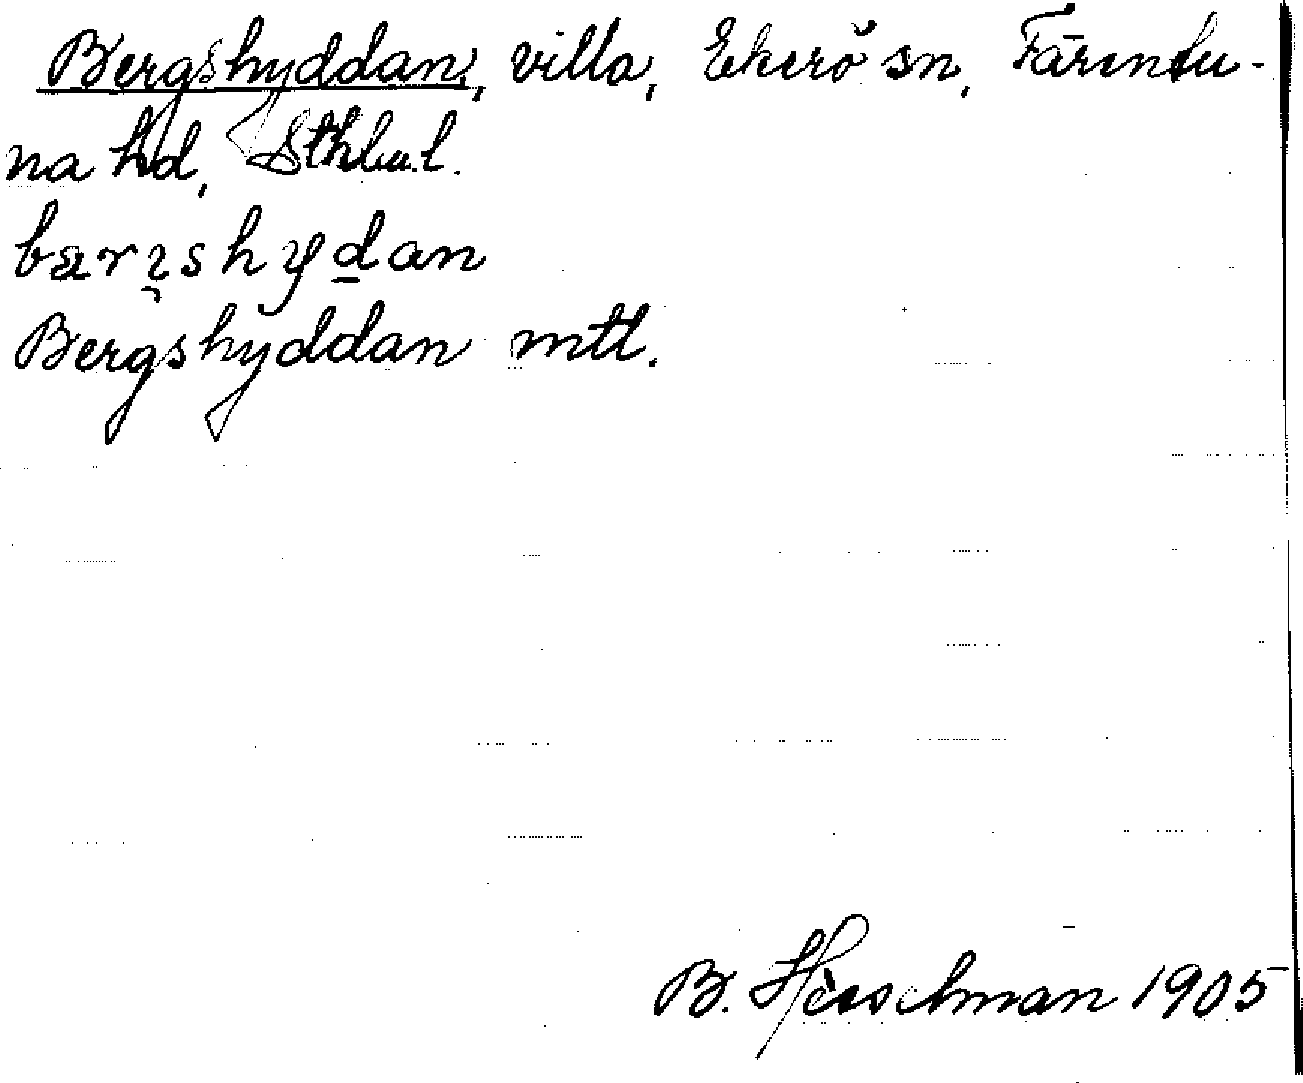 Bergshyddan, villa, Ekerö sn, Färentu-
na hd, Sthlm. l.
bærıshydan
Bergshyddan mtl.
B. Hesselman 1905